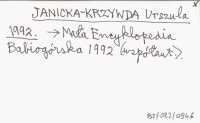 JANICKA-KRZYWDA Urszula
1992. → Mała Encyklopedia
Babiogórska 1992 (współaut.).
BJ/021/0946